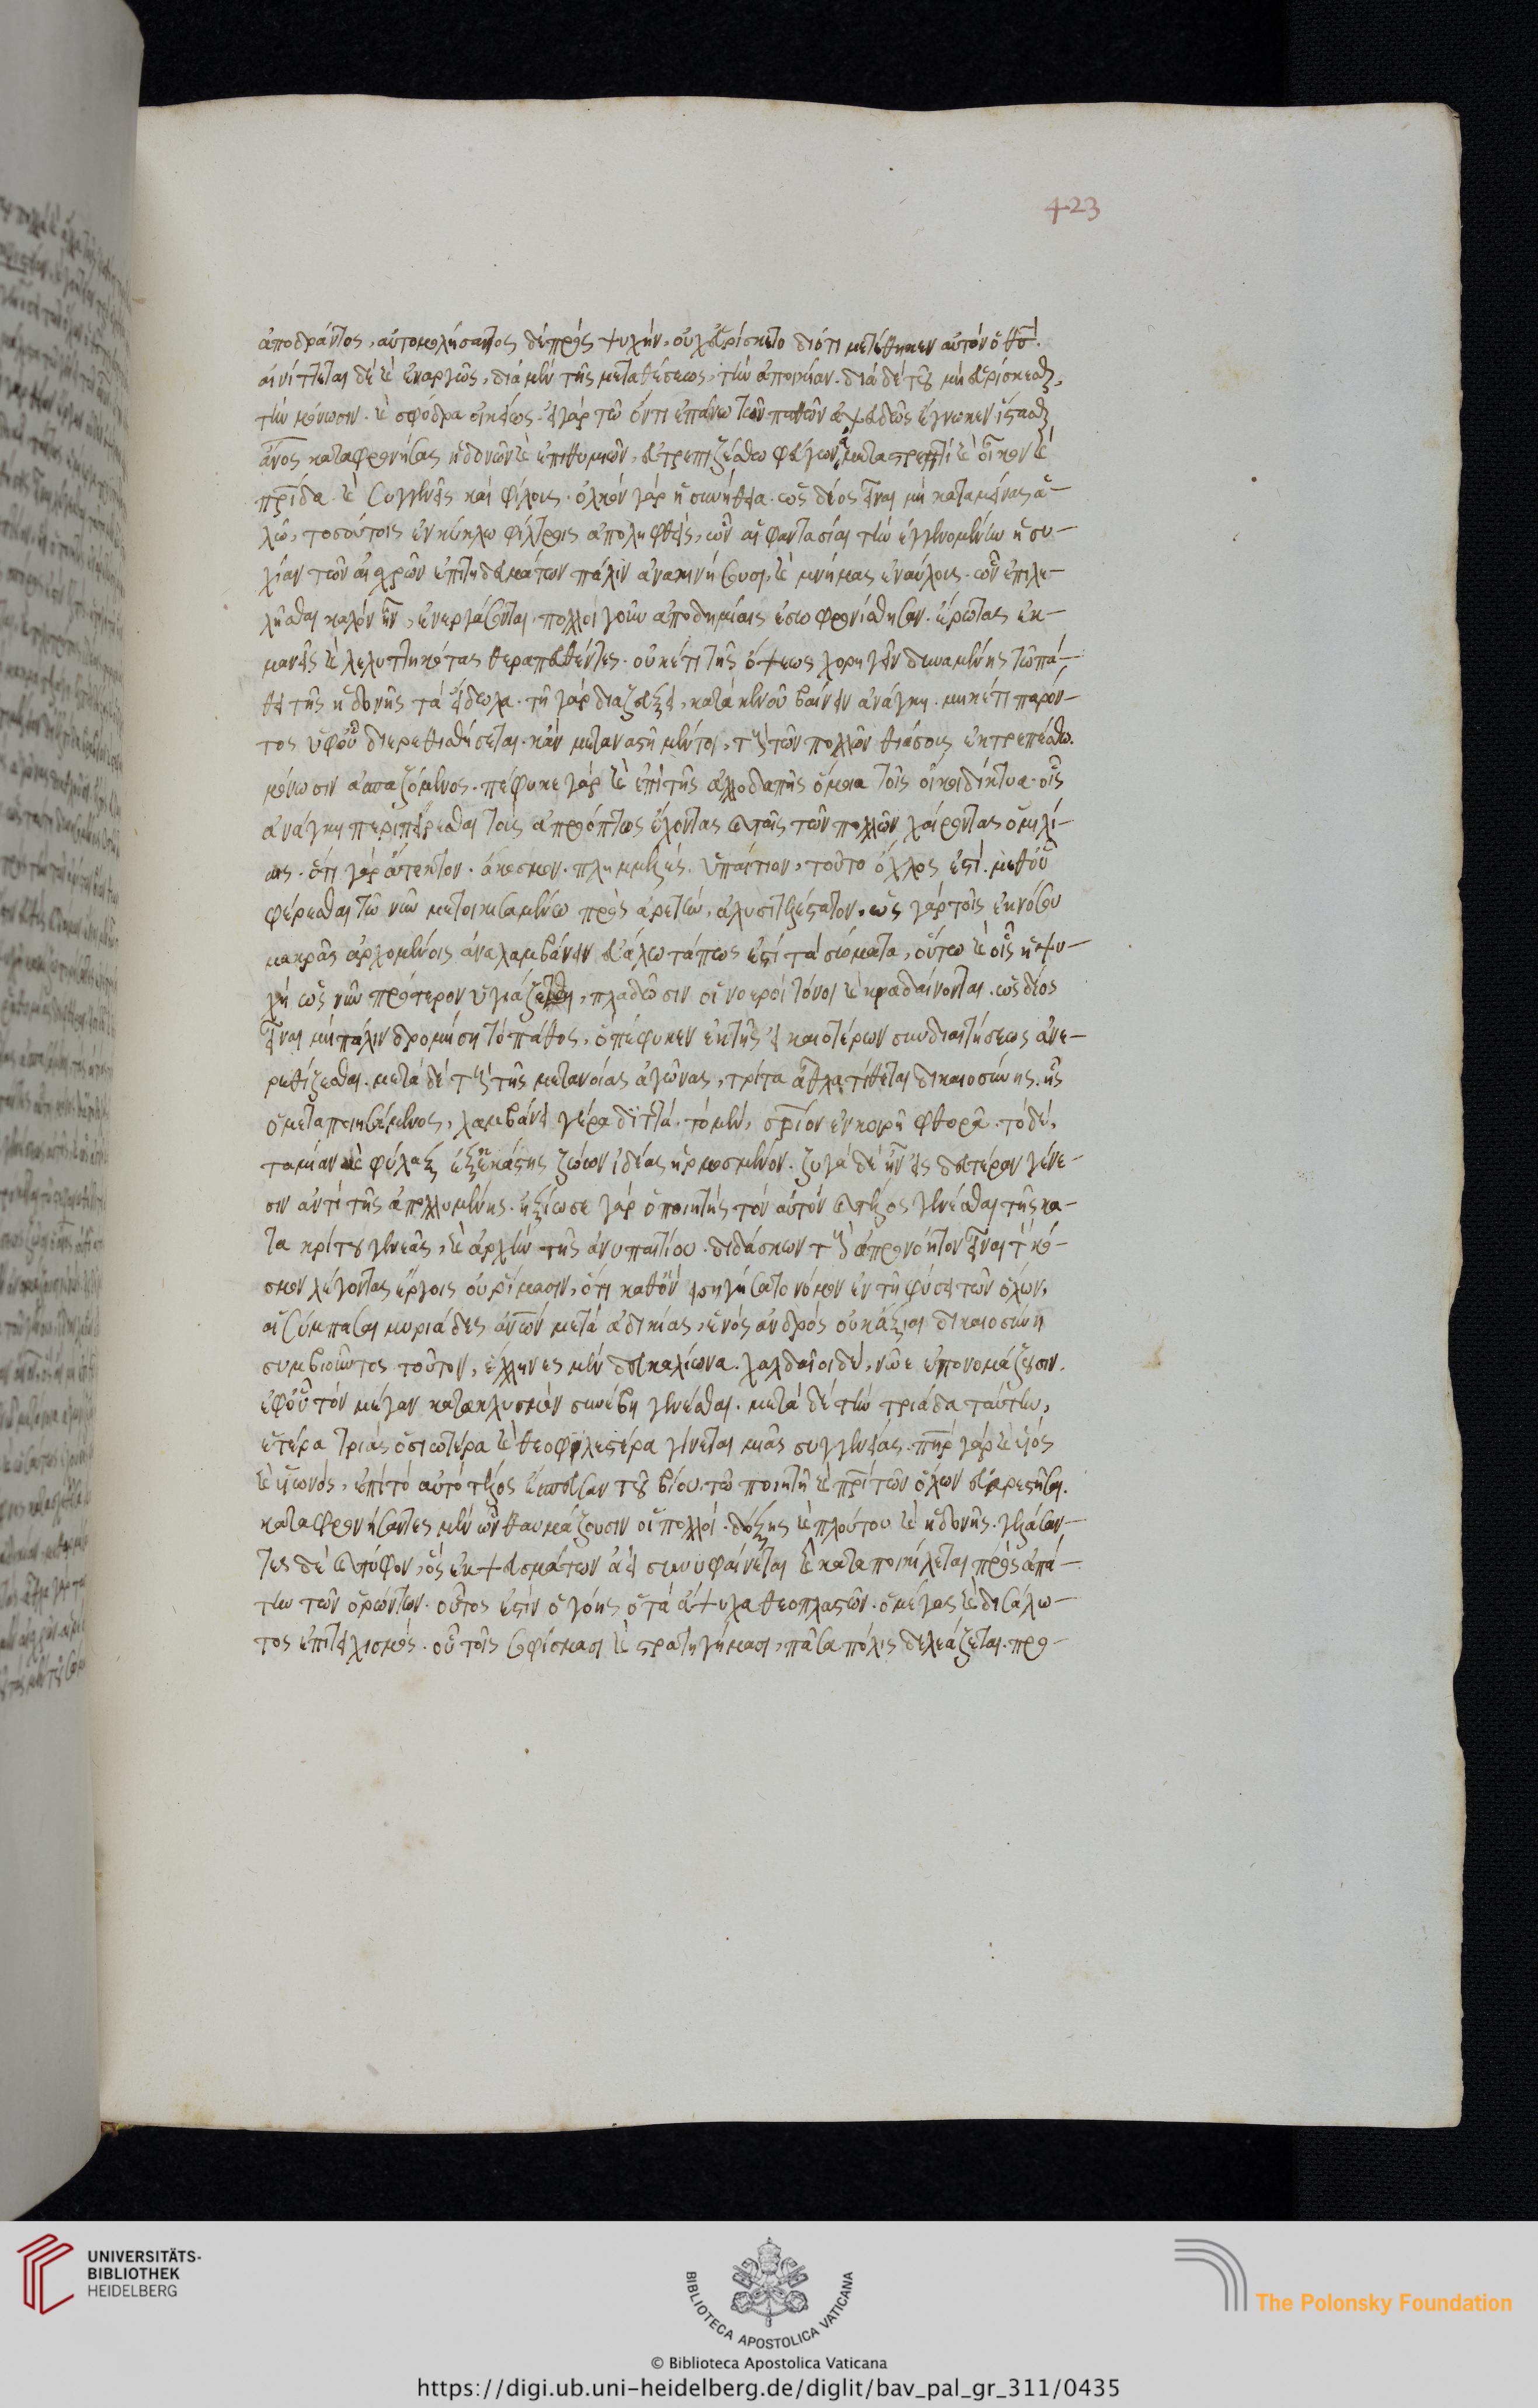 423
ἀποδράντος, αὐτομολήσαντος δὲ πρὸς ψυχήν, οὐχ εὑρίσκετο διότι μετέθηκεν αὐτὸν ὁ θς.
αἰνίττεται δὲ καὶ ἐναργῶς, διὰ μὲν τῆς μεταθέσεως, τὴν ἀποικίαν. διὰ δὲ τοῦ μὴ εὑρίσκεσθαι,
τὴν μόνωσιν. καὶ σφόδρα οἰκείως. εἰ γὰρ τῶ ὄντι ἐπάνω τῶν παθῶν ἀψευδῶς ἔγνωκεν ἵστασθαι
ἄνος καταφρονήσας ἡδονῶν καὶ ἐπιθυμιῶν, εὐτρεπιζέσθω φεύγων ἀμεταστρεπτὶ καὶ οἶκον καὶ
πρίδα. καὶ συγγενεῖς καὶ φίλους. ὁλκὸν γὰρ ἡ συνήθεια. ὡς δέος εἶναι μὴ καταμείνας ἁ-
λῶ, τοσούτοις ἐν κύκλω φίλτροις ἀποληφθείς, ὧν αἱ φαντασίαι τὴν ἐγγενομένην ἡσυ-
χίαν τῶν αἰσχρῶν ἐπιτηδευμάτων πάλιν ἀνακινήσουσι, καὶ μνήμας ἐναύλους. ὧν ἐπιλε-
λῆσθαι καλὸν ἦν, ἐνεργάσονται, πολλοὶ γοῦν ἀποδημίαις ἐσωφρονίσθησαν. ἔρωτας ἐκ-
μανεῖς καὶ λελυττηκότας θεραπευθέντες. οὐκέτι τῆς ὄψεως χορηγεῖν δυναμένης τῶ πά-
θει τῆς ἡδονῆς τὰ εἴδωλα. τῇ γὰρ διαζεύξει, κατὰ κενοῦ βαίνειν ἀνάγκη. μηκέτι παρόν-
τος ὑφ’ οὗ διερεθισθήσεται. κἂν μεταναστῇ μέντοι, τοὺς τῶν πολλῶν θιάσους ἐκτρεπέσθω.
μόνωσιν ἀσπαζόμενος. πέφυκε γὰρ καὶ ἐπὶ τῆς ἀλλοδαπῆς ὅμοια τοῖς οἴκοι δίκτυα. οἷς
ἀνάγκη περιπείρεσθαι τοὺς ἀπρόπτως ἔχοντας καὶ ταῖς τῶν πολλῶν χαίροντας ὁμιλί-
αις. ὅτι γὰρ ἄτακτον. ἄκοσμον. πλημμελές. ὑπαίτιον, τοῦτο ὄχλος ἐστί. μεθ’ οὗ
φέρεσθαι τῶ νῦν μετοικισαμένω πρὸς ἀρετήν, ἀλυσιτελέστατον, ὡς γὰρ τοῖς ἐκ νόσου
μακρᾶς ἀρχομένοις ἀναλαμβάνειν εὐάλωτά πως ἐστὶ τὰ σώματα, οὕτω καὶ οἷς ἡ ψυ-
χὴ ὡς νῦν πρότερον ὑγιάζεται, πλαδῶσιν οἱ νοεροὶ τόνοι καὶ κραδαίνονται. ὡς δέος
εἶναι μὴ παλινδρομήσῃ τὸ πάθος, ὃ πέφυκεν ἐκ τῆς εἰκαιοτέρων συνδιαιτήσεως ἀνε-
ρεθίζεσθαι. μετὰ δὲ τοὺς τῆς μετανοίας ἀγῶνας, τρίτα ἆθλα τίθεται δικαιοσύνης. ἧς
ὁ μεταποιησάμενος, λαμβάνει γέρα διττά. τὸ μὲν, σρίον ἐν κοινῇ φθορᾷ. τὸ δὲ,
ταμίαν καὶ φύλακα ἐξ ἑκάστης ζώων ἰδέας ἡρμοσμένον. ζυγὰ δὲ ἦν εἰς δευτέραν γένε-
σιν ἀντὶ τῆς ἀπολλυμένης. ἠξίωσε γὰρ ὁ ποιητὴς τὸν αὐτὸν καὶ τέλος γενέσθαι τῆς κα-
τακρίτου γενεᾶς, καὶ ἀρχὴν τῆς ἀνυπαιτίου. διδάσκων τοὺς ἀπρονόητον εἶναι τὸν κό-
σμον λέγοντας ἔργοις οὐ ῥήμασιν, ὅτι καθ’ ὃν εἰσηγήσατο νόμον ἐν τῇ φύσει τῶν ὅλων,
αἱ σύμπασαι μυριάδες ἀνων μετὰ ἀδικίας, ἑνὸς ἀνδρὸς οὐκ ἄξιαι δικαιοσύνῃ
συμβιοῦντος τοῦτον, ἕλληνες μὲν δευκαλίωνα. χαλδαῖοι δὲ, νῶε ἐπονομάζουσιν.
ἐφ’ οὗ τὸν μέγαν κατακλυσμὸν συνέβη γενέσθαι. μετὰ δὲ τὴν τριάδα ταύτην,
ἑτέρα τριὰς ὁσιωτέρα καὶ θεοφιλεστέρα γίνεται μιᾶς συγγενείας. πηρ γὰρ καὶ υἱὸς
καὶ υἱωνός, ἐπὶ τὸ αὐτὸ τέλος ἔσπευσαν τοῦ βίου. τῶ ποιητῇ καὶ πρὶ τῶν ὅλων εὐαρεστῆσαι.
καταφρονήσαντες μὲν ὧν θαυμάζουσιν οἱ πολλοί. δόξης καὶ πλούτου καὶ ἡδονῆς. γελάσαν-
τες δὲ καὶ τύφον, ὃς ἐκ ψευσμάτων ἀεὶ συνυφαίνεται καὶ καταποικίλλεται πρὸς ἀπά-
την τῶν ὁρώντων. οὗτος ἐστὶν ὁ γόης ὁ τὰ ἄψυχα θεοπλαστῶν. ὁ μέγας καὶ δυσάλω-
τος ἐπιτειχισμός. οὗ τοῖς σοφίσμασι καὶ στρατηγήμασι, πᾶσα πόλις δελεάζεται. προ-
UNIVERSITÄTS-
BIBLIOTHEK
HEIDELBERG
BIBLIOTECA APOSTOLICA VATICANA
The Polonsky Foundation
© Biblioteca Apostolica Vaticana
https://digi.ub.uni-heidelberg.de/diglit/bav_pal_gr_311/0435